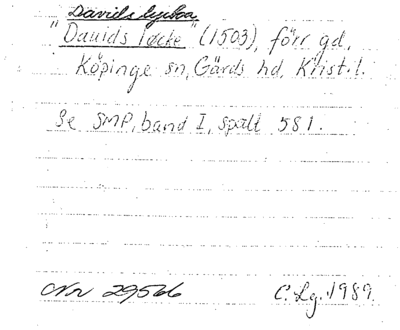 Davids lycka
"Dauids løcke" (1503), förr gd,
Köpinge sn, Gärds hd, Krist. l.
Se SMP, band I, spalt 581.
Nv 29566 C. Lg. 1989.